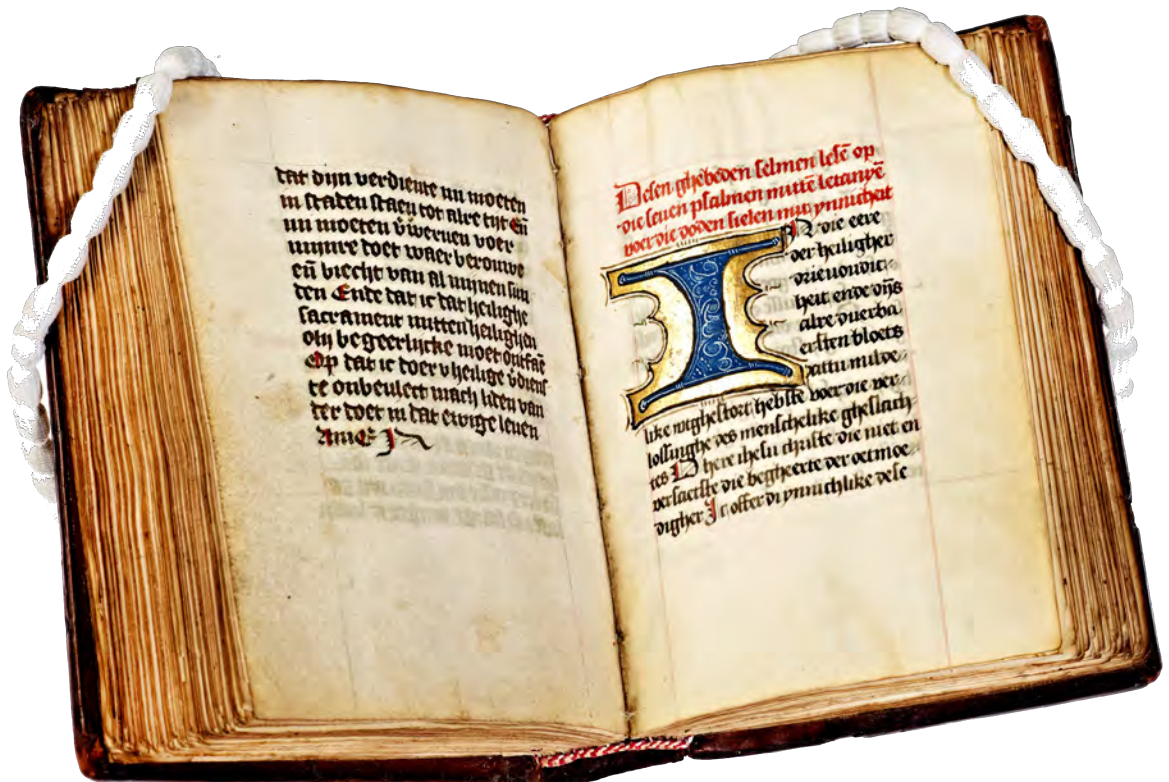 dat dijn verdiente mi moeten
in staden staen tot alre tijt Eñ
mi moeten v̄werven voer
mijnre doet waer berouwe
eñ biecht van al mijnen sun
den Ende dat ic dat heilighe
sacrament mitten heilighen
olij begeerlijcke moet ontfaē
Op dat ic doer v heilige v̄dienſ
te onbeulect mach liden van
der doet in dat ewige leuen
Amē
Desen ghebeden selmen lesē op
die seuen psalmen mittē letanyē
voer die doden sielen mit ynnicheit
IN die eere
der heiligher
drieuoudic
heit ende dijs
alre duerba
ersten bloets
dattu milde
like wtghestort hebste voer die ver
lossinghe des menschelike gheslach
tes O here ihesu christe die niet en
versaecste die begheerte der oetmoe
digher Ic offer di ynnichlike dese